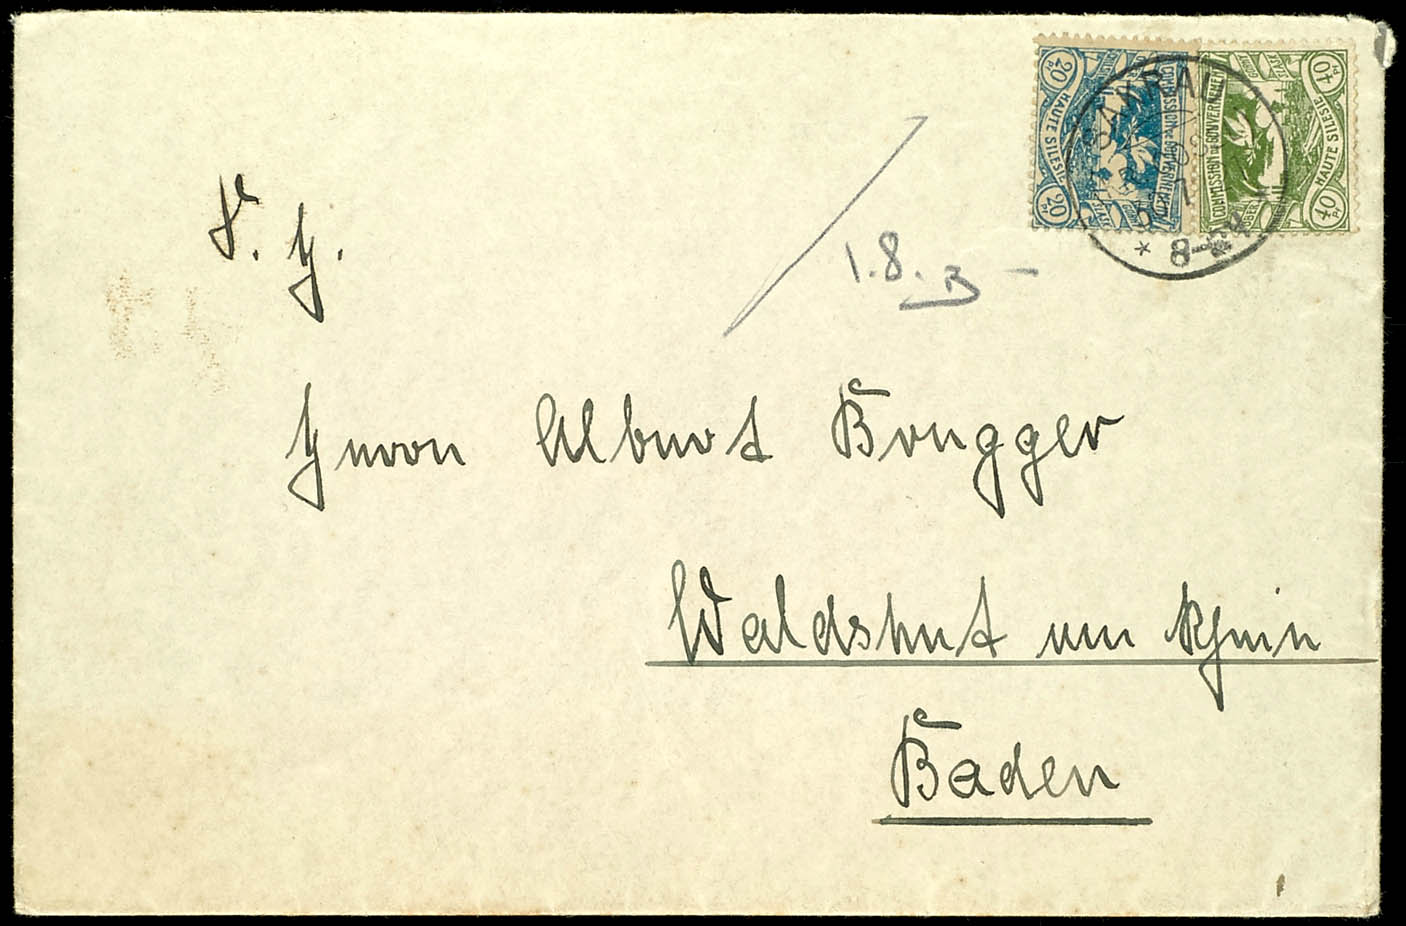 20 Pf
20 Pf
HAUTE SILESIE
COMMISSION DE GOUVERNEMENT
40 Pf
40 Pf
HAUTE SILESIE
COMMISSION DE GOUVERNEMENT
SAKRAU
* 8-
1.8.
S. H.
Herrn Albert Brugger
Waldshut am Rhein
Baden